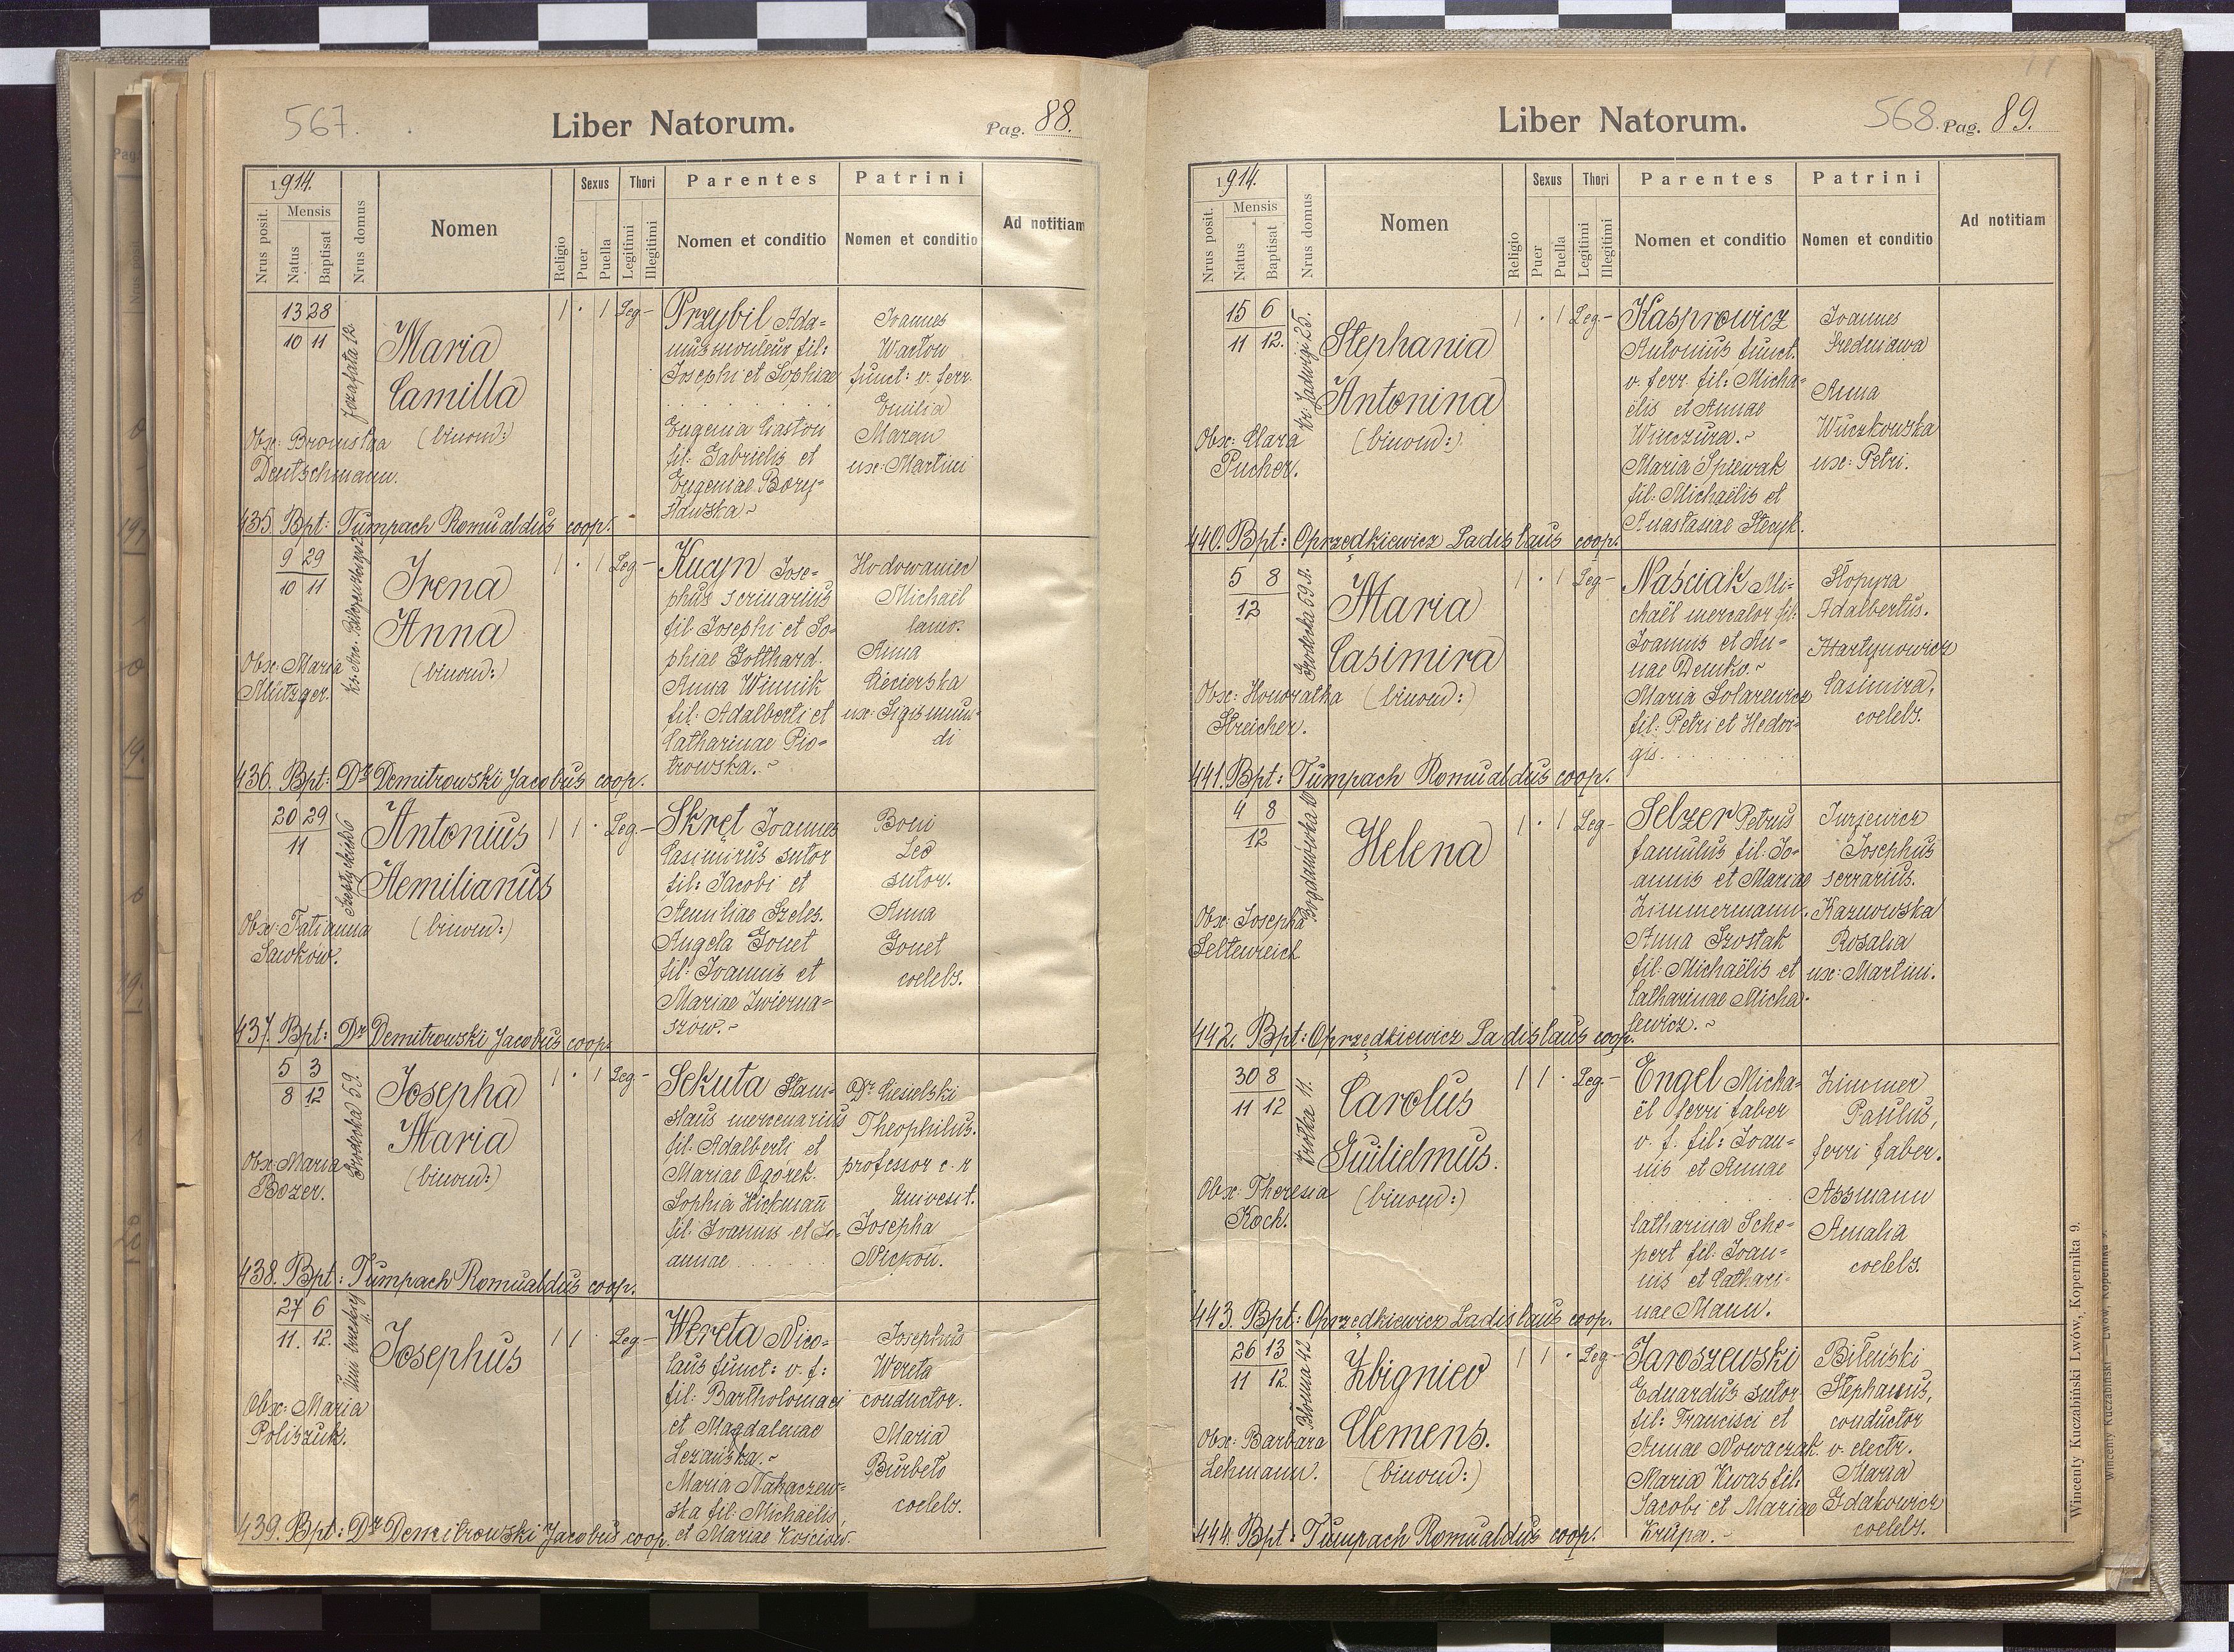 567.
Liber Natorum.
Pag. 88.
1914.
Nrus posit.
Mensis
Natus
Baptisat
Nrus domus
Nomen
Religio
Sexus
Puer
Puella
Thori
Legitimi
Illegitimi
Parentes
Nomen et conditio
Patrini
Nomen et conditio
Ad notitiam
13 28
10 11
Jozafata 12.
Maria
Camilla
(binom:)
Obx: Bronisłaa
Deutschmann.
1 · 1 Leg-
Przybil Ada=
mus monteur fil:
Josephi et Sophiae
Eugenia Gaston
fil: Gabrielis et
Eugeniae Bory=
sławska.~
Joannes
Warton
funct: v. ferr.
Emilia
Maran
ux: Martini
435. Bpt: Tumpach Romualdus coop.
9 29
10 11
Irena
Anna
(binom:)
Obx: Maria
Mützger.
1 · 1 Leg-
Kucyn Jose=
phus scrinarius
fil: Josephi et So=
phiae Gotthard.
Anna Winnik
fil: Adalberti et
Catharinae Pio=
trowska.~
Hodowaniec
Michaël
lanio.
Anna
Ciecierska
ux: Sigismun=
di
436. Bpt: Dr Demitrowski Jacobus coop.
20 29
11
Szeptyckich 6
Antonius
Aemilianus
(binom:)
Obx: Tatianna
Sawków.
1 1 · Leg.-
Skręt Joannes
Casimirus sutor
fil: Jacobi et
Aemiliae Szeles.
Angela Gonet
fil: Joannis et
Mariae Zwierna=
szów.~
Boni
Leo
sutor.
Anna
Gonet
coelebs.
437. Bpt: Dr Demitrowski Jacobus coop.
5 3
8 12
Grodecka 59.
Josepha
Maria
(binom:)
Obx: Maria
Bozer.
1 · 1 Leg-
Sekuta Stani-
slaus mercenarius
fil: Adalberti et
Mariae Ogórek.
Sophia Hickmañ
fil: Joannis et Jo-
annae
Dr Ciesielski
Theophilus.
professor c. r
Univesit.
Josepha
438. Bpt: Tumpach Romualdus coop.
27 6
11. 12.
Josephus
Obx: Maria
Poliszuk.
1 1 · Leg-
Wereta Nico=
laus funct: v. f:
fil: Bartholomaei
et Magdalenae
Lezańska.~
Maria Nakaczew=
ska fil: Michaëlis,
et Mariae Kościów.
Josephus
Wereta
conductor.
Maria
Burbeło
coelebs.
439. Bpt: Dr Demitrowski Jacobus coop.
Liber Natorum.
568. Pag. 89.
1914.
Nrus posit.
Mensis
Natus
Baptisat
Nrus domus
Nomen
Religio
Sexus
Puer
Puella
Thori
Legitimi
Illegitimi
Parentes
Nomen et conditio
Patrini
Nomen et conditio
Ad notitiam
15 6
11 12.
Kr. Jadwigi 25.
Stephania
Antonina
(binom:)
Obx: Clara
Pucher.
1 · 1 Leg-
Kasprowicz
Antonius funct.
v. ferr. fil: Micha=
ëlis et Annae
Winczura.~
Maria Śpiewak
fil: Michaëlis et
Anastasiae Stecyk.
Joannes
Średniawa
Anna
Wuczkowska
ux: Petri.
440. Bpt: Oprzędkiewicz Ladislaus coop.
5 8
12
Grodecka 69.A.
Maria
Casimira
(binom:)
Obx: Honoratha
Streicher.
1 · 1 Leg-
Naściak Mi-
chaël mercator fil:
Joannis et An-
nae Demko.~
Maria Solarewicz
fil: Petri et Hedvi-
gis
Słopyra
Adalbertus.
Martynowicz
Casimira,
coelebs.
441. Bpt: Tumpach Romualdus coop.
4 8
12
Bogdanówka 10
Helena
Obx: Josepha
Seltenreich
1 · 1 Leg-
Selzer Petrus
famulus fil: Jo-
annis et Mariae
Zimmermann.
Anna Szostak
fil: Michaëlis et
Catharinae Micha-
lewicz.~
Jurjewicz
Josephus
serrarius.
Karnowska
Rosalia
ux: Martini.
442. Bpt: Oprzędkiewicz Ladislaus coop.
30 8
11 12
Krótka 11.
Carolus
Guilielmus.
(binom:)
Obx: Theresia
Koch.
1 1 · Leg.-
Engel Micha-
ël ferri faber
v. f. fil: Joan-
nis et Annae
Catharina Sche-
pert fil: Joan-
nis et Cathari-
nae Mann.
Zimmer
Paulus,
ferri faber.
Assmann
Amalia
coelebs.
443. Bpt: Oprzędkiewicz Ladislaus coop.
26 13
11 12.
Błonia 42
Zbigniev
Clemens.
(binom:)
Obx: Barbara
Lehmann.
1 1 · Leg-
Jaroszewski
Eduardus sutor
fil: Francisci et
Annae Nowaczak.
Maria Kwas fil:
Jacobi et Mariae
Krupa.~
Biliński
Stephanus,
conductor
v. electr.
Maria
Zdakowicz
coelebs.
444. Bpt: Tumpach Romualdus coop.
Wincenty Kuczabiński Lwów, Kopernika 9.